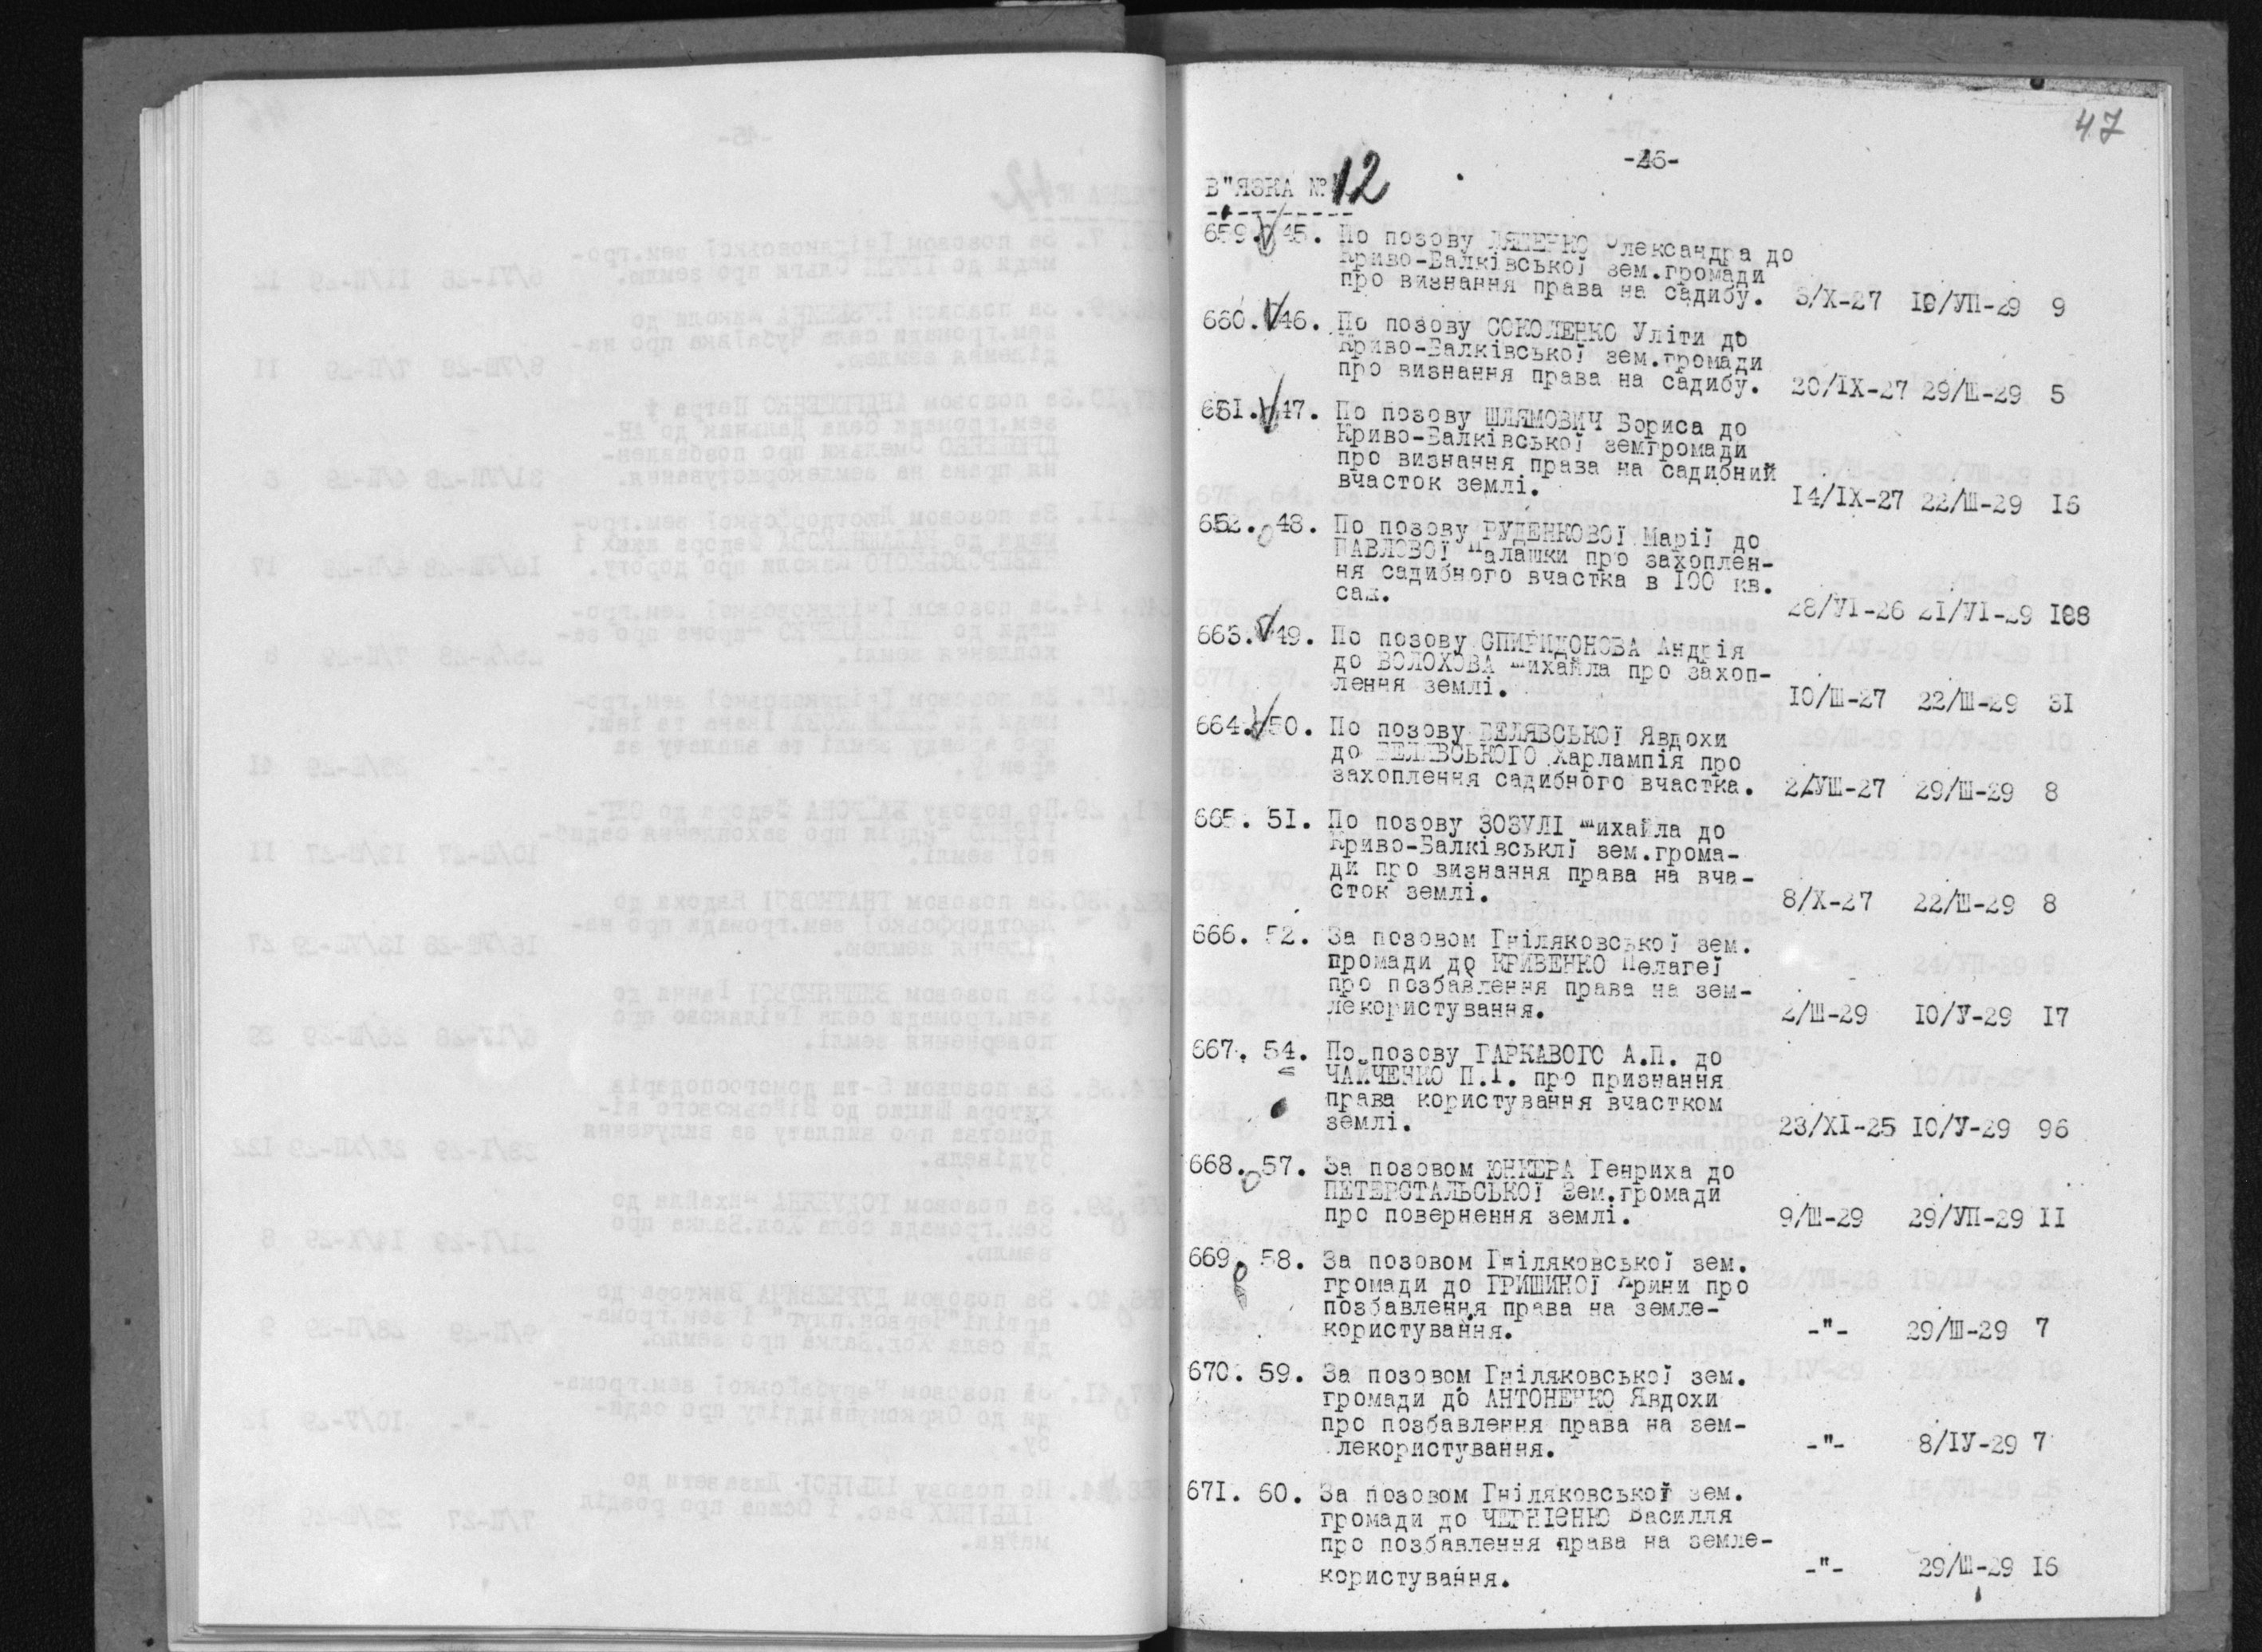 47
-46-
В"ЯЗКА №12
659. 45. По позову ЛЯШЕНКО Олександра до
Криво-Балківської зем.громади
про визнання права на садибу. 3/Х-27 10/УП-29 9
660. 46. По позову СОКОЛЕНКО Уліти до
Криво-Балківської зем.громади
про визнання права на садибу. 20/ІХ-27 29/Ш-29 5
661. 47. По позову ШЛЯМОВИЧ Бориса до
Криво-Балківської земгромади
про визнання права на садибний
вчасток землі. 14/ІХ-27 22/Ш-29 16
662. 48. По позову РУДЕНКОВОЇ Марії до
ПАВЛОВОЇ Малашки про захоплен-
ня садибного вчастка в 100 кв.
саж. 28/УІ-26 21/УІ-29 188
663. 49. По позову СПИРИДОНОВА Андрія
до ВОЛОХОВА Михайла про захоп-
лення землі. 10/Ш-27 22/Ш-29 31
664. 50. По позову БЕЛЯВСЬКОЇ Явдохи
до БЕЛЯВСЬКОГО Харлампія про
захоплення садибного вчастка. 2/УШ-27 29/Ш-29 8
665. 51. По позову ЗОЗУЛІ Михайла до
Криво-Балківськлї зем.грома-
ди про визнання права на вча-
сток землі. 8/Х-27 22/Ш-29 8
666. 52. За позовом Гніляковської зем.
громади до КРИВЕНКО Пелагеї
про позбавлення права на зем-
лекористування. 2/Ш-29 10/У-29 17
667. 54. По позову ГАРКАВОГО А.П. до
ЧАЙЧЕНКО П.І. про признання
права користування вчастком
землі. 23/ХІ-25 10/У-29 96
668. 57. За позовом ЮНКЕРА Генриха до
ПЕТЕРСТАЛЬСЬКОЇ Зем.громади
про повернення землі. 9/Ш-29 29/УП-29 11
669. 58. За позовом Гніляковської зем.
громади до ГРИШИНОЇ Арини про
позбавлення права на земле-
користування. -"- 29/Ш-29 7
670. 59. За позовом Гніляковської зем.
громади до АНТОНЕНКО Явдохи
про позбавлення права на зем-
лекористування. -"- 8/ІУ-29 7
671. 60. За позовом Гніляковської зем.
громади до ЧЕРНІЄНКО Василля
про позбавлення права на земле-
користування. -"- 29/Ш-29 16